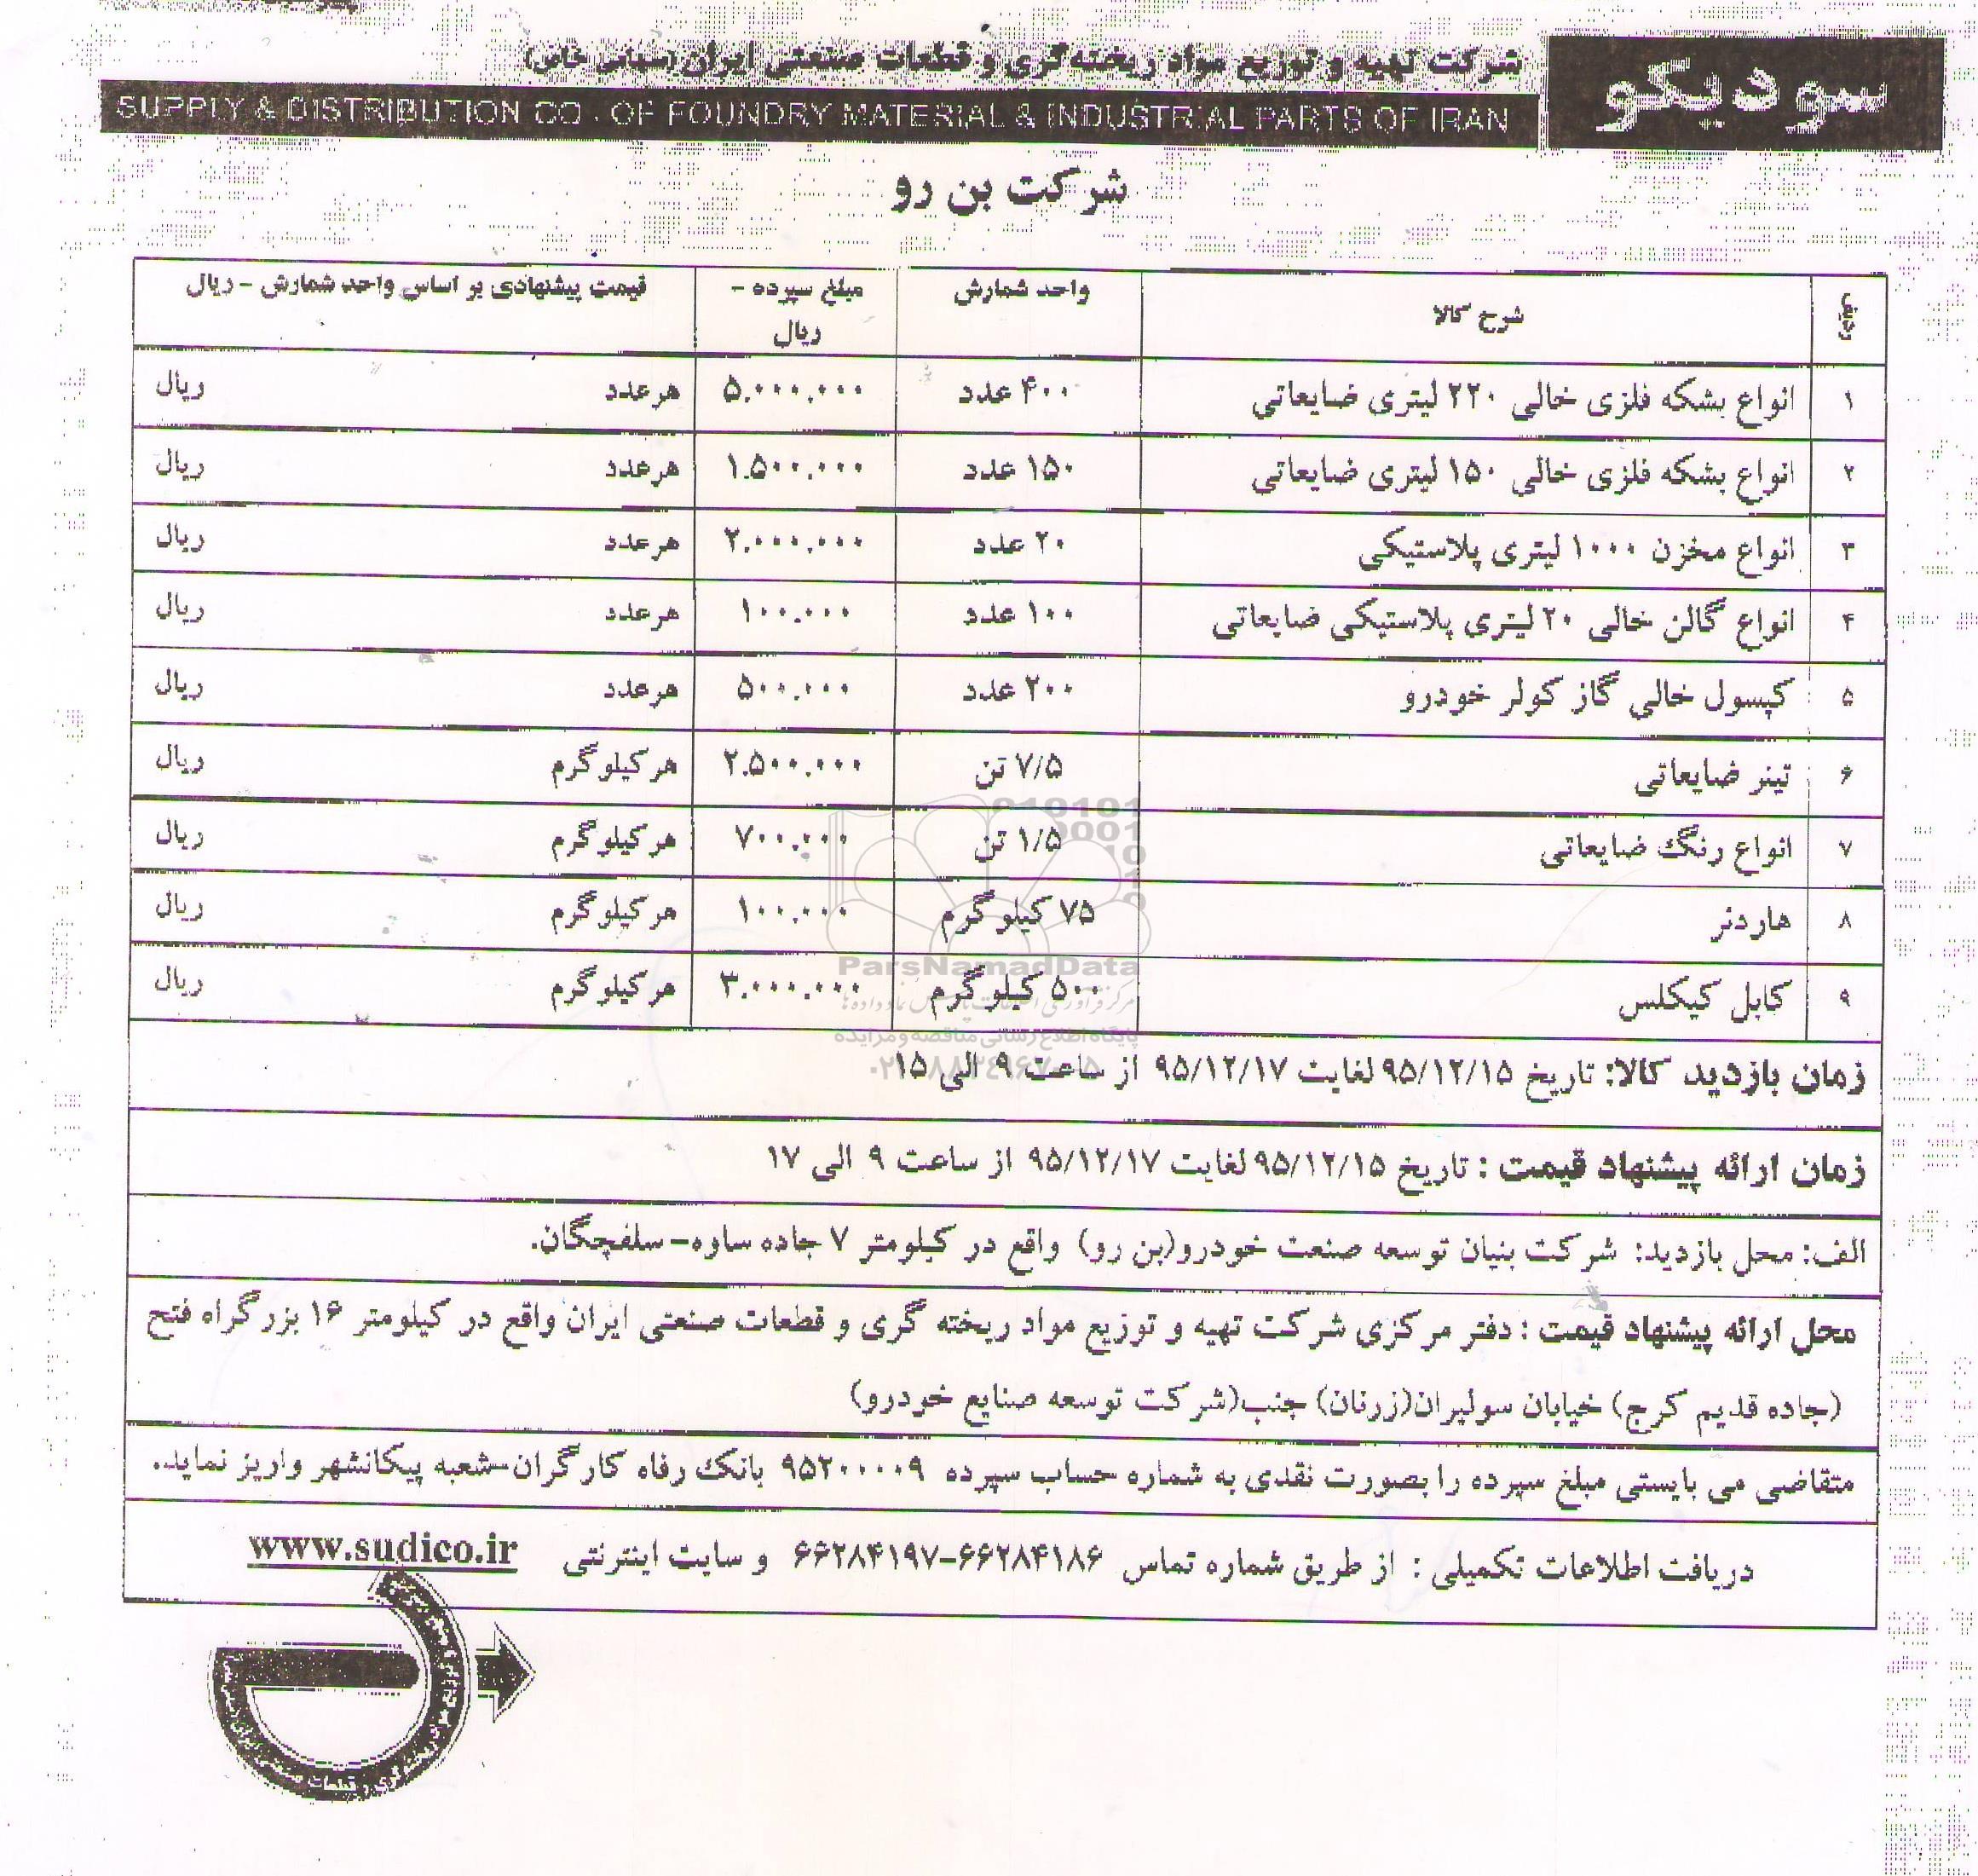 سودیکو
شرکت تهیه و توزیع مواد ریخته گری و قطعات صنعتی ایران (سهامی خاص)
SUPPLY & DISTRIBUTION CO . OF FOUNDRY MATERIAL & INDUSTRIAL PARTS OF IRAN
شرکت بن رو
ردیف	شرح کالا	واحد شمارش	مبلغ سپرده - ریال	قیمت پیشنهادی بر اساس واحد شمارش - ریال
۱	انواع بشکه فلزی خالی ۲۲۰ لیتری ضایعاتی	۴۰۰ عدد	۵.۰۰۰.۰۰۰	هرعدد ریال
۲	انواع بشکه فلزی خالی ۱۵۰ لیتری ضایعاتی	۱۵۰ عدد	۱.۵۰۰.۰۰۰	هرعدد ریال
۳	انواع مخزن ۱۰۰۰ لیتری پلاستیکی	۲۰ عدد	۲.۰۰۰.۰۰۰	هرعدد ریال
۴	انواع گالن خالی ۲۰ لیتری پلاستیکی ضایعاتی	۱۰۰ عدد	۱۰۰.۰۰۰	هرعدد ریال
۵	کپسول خالی گاز کولر خودرو	۲۰۰ عدد	۵۰۰.۰۰۰	هرعدد ریال
۶	تینر ضایعاتی	۷/۵ تن	۲.۵۰۰.۰۰۰	هرکیلوگرم ریال
۷	انواع رنگ ضایعاتی	۱/۵ تن	۷۰۰.۰۰۰	هرکیلوگرم ریال
۸	هاردنر	۷۵ کیلوگرم	۱۰۰.۰۰۰	هرکیلوگرم ریال
۹	کابل کیکلس	۵۰۰ کیلوگرم	۳.۰۰۰.۰۰۰	هرکیلوگرم ریال
ParsNamadData
پایگاه اطلاع رسانی مناقصه و مزایده
زمان بازدید کالا: تاریخ ۹۵/۱۲/۱۵ لغایت ۹۵/۱۲/۱۷ از ساعت ۹ الی ۱۵
زمان ارائه پیشنهاد قیمت : تاریخ ۹۵/۱۲/۱۵ لغایت ۹۵/۱۲/۱۷ از ساعت ۹ الی ۱۷
الف: محل بازدید: شرکت بنیان توسعه صنعت خودرو(بن رو) واقع در کیلومتر ۷ جاده ساوه–سلفچگان.
محل ارائه پیشنهاد قیمت : دفتر مرکزی شرکت تهیه و توزیع مواد ریخته گری و قطعات صنعتی ایران واقع در کیلومتر ۱۶ بزرگراه فتح
(جاده قدیم کرج) خیابان سولیران(زرنان) جنب(شرکت توسعه صنایع خودرو)
متقاضی می بایستی مبلغ سپرده را بصورت نقدی به شماره حساب سپرده ۹۵۲۰۰۰۰۹ بانک رفاه کارگران–شعبه پیکانشهر واریز نماید.
دریافت اطلاعات تکمیلی : از طریق شماره تماس ۶۶۲۸۴۱۸۶-۶۶۲۸۴۱۹۷ و سایت اینترنتی www.sudico.ir